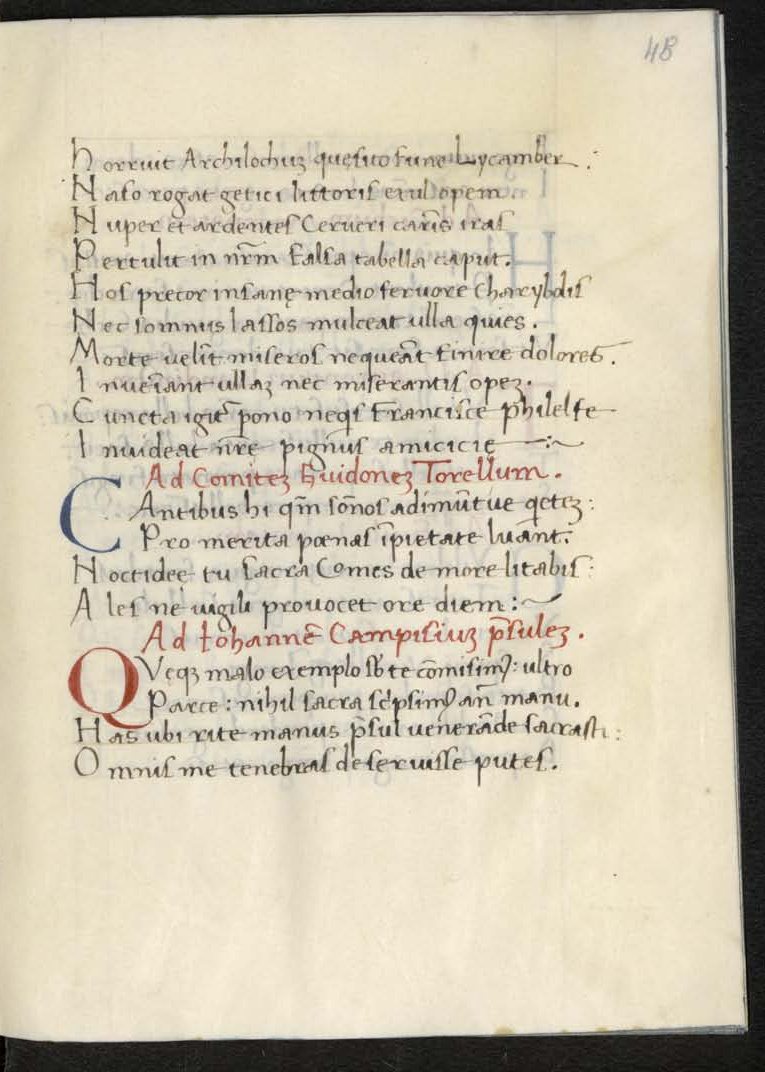 48
Horruit Archilochuʒ quesito fune Lycamber .
Naso rogat getici littoris exul opem.
Nuper et ardentes Cerueri caris iras
Pertulit in nr̄m falsa tabella caput.
Hos precor insanę medio feruore charybdis
Nec somnus lassos mulceat ulla quies.
Morte uelit miseros nequeāt finire dolores.
Inueīant ullaʒ nec miserantis opeʒ.
Cuncta igit pono neqs Francisce philelfe
Inuideat nr̄ę pignus amicicię
Ad Comiteʒ Guidoneʒ Torellum.
CAntibus hi qm̄ sōnos adimūt ue qeteʒ:
Pro merita pœnas īpietate luānt.
Noctideę tu sacra Comes de more litabis:
Ales ne uigili prouocet ore diem:
Ad Iohannē Campisiuʒ p̄suleʒ.
QVeqʒ malo exemplo sb te cōmisimꝰ: ultro
Parce: nihil sacra sc̄psimꝰ an̄ manu.
Has ubi rite manus p̄sul uenerāde sacrasti:
Omnis me tenebras deseruisse putes.